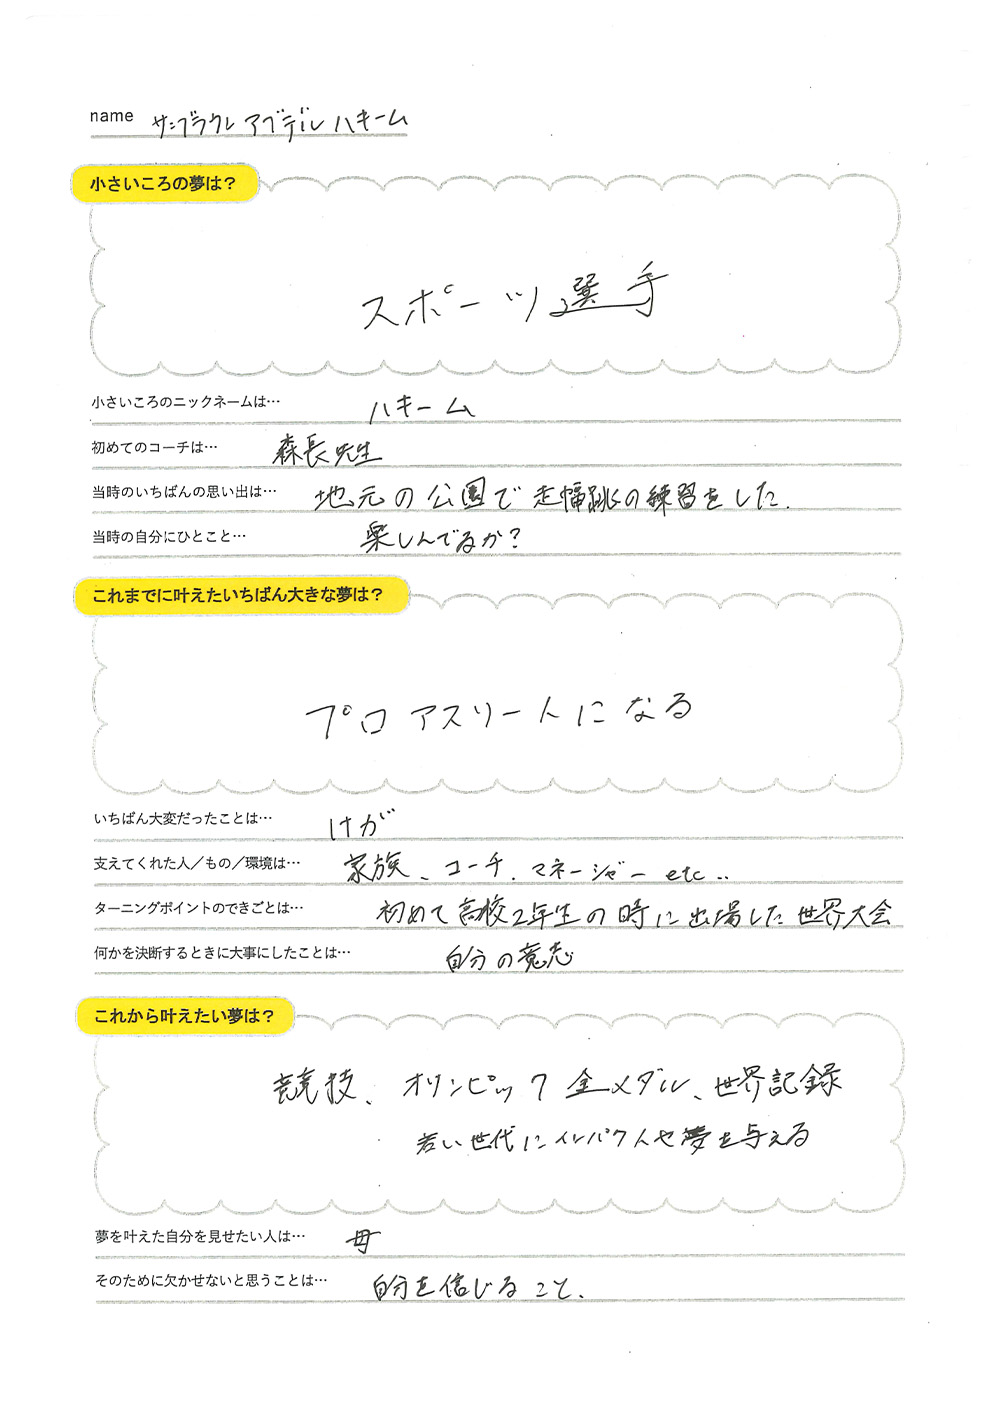 name サニブラウン アブデル ハキーム
小さいころの夢は？
スポーツ選手
小さいころのニックネームは… ハキーム
初めてのコーチは… 森長先生
当時のいちばんの思い出は… 地元の公園で走幅跳の練習をした.
当時の自分にひとこと… 楽しんでるか？
これまでに叶えたいちばん大きな夢は？
プロアスリートになる
いちばん大変だったことは… けが
支えてくれた人／もの／環境は… 家族、コーチ、マネージャー etc..
ターニングポイントのできごとは… 初めて高校2年生の時に出場した世界大会
何かを決断するときに大事にしたことは… 自分の意志
これから叶えたい夢は？
競技、オリンピック金メダル、世界記録
若い世代にインパクトや夢を与える
夢を叶えた自分を見せたい人は… 母
そのために欠かせないと思うことは… 自分を信じること.